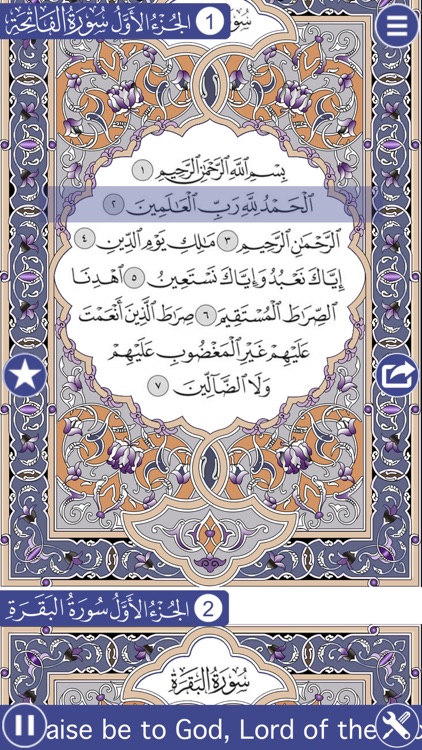 الجزء الأول سورة الفاتحة 1
بِسْمِ ٱللَّهِ ٱلرَّحْمَٰنِ ٱلرَّحِيمِ ١
ٱلْحَمْدُ لِلَّهِ رَبِّ ٱلْعَٰلَمِينَ ٢
ٱلرَّحْمَٰنِ ٱلرَّحِيمِ ٣ مَٰلِكِ يَوْمِ ٱلدِّينِ ٤
إِيَّاكَ نَعْبُدُ وَإِيَّاكَ نَسْتَعِينُ ٥ ٱهْدِنَا
ٱلصِّرَٰطَ ٱلْمُسْتَقِيمَ ٦ صِرَٰطَ ٱلَّذِينَ أَنْعَمْتَ
عَلَيْهِمْ غَيْرِ ٱلْمَغْضُوبِ عَلَيْهِمْ
وَلَا ٱلضَّآلِّينَ ٧
الجُزءُ الأَوَّلُ سُورَةُ البَقَرَةِ 2
سُورَةُ البَقَرَةِ
aise be to God, Lord of the